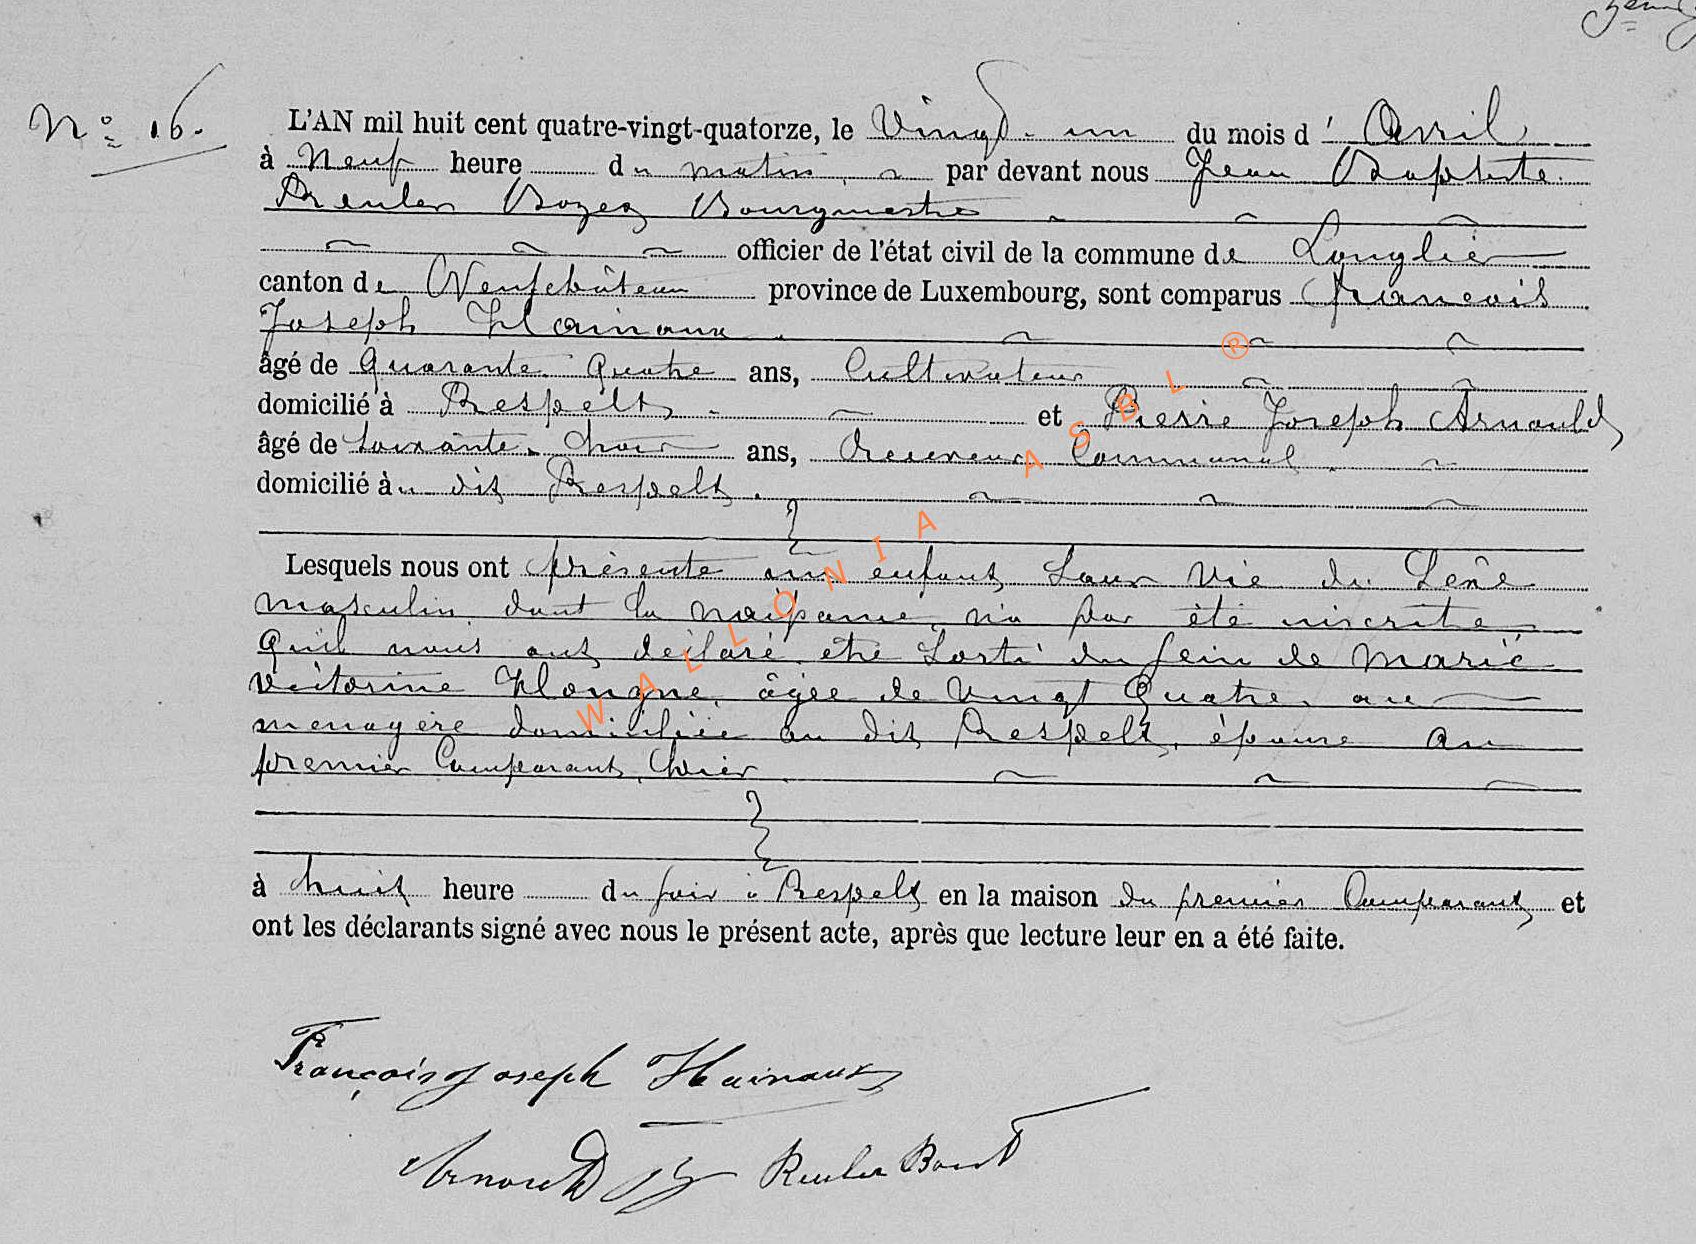 N° 16.
L'AN mil huit cent quatre-vingt-quatorze, le Vingt-un du mois d' Avril
à Neuf heure du matin par devant nous Jean Baptiste
Reuler Bozez Bourgmestre
officier de l'état civil de la commune de Longlier
canton de Neufchâteau province de Luxembourg, sont comparus francois
Joseph Hainaux
âgé de Quarante Quatre ans, Cultivateur
domicilié à Respelt et Pierre Joseph Arnould
âgé de soixante trois ans, Receveur Communal
domicilié au dit Respelt.
Lesquels nous ont présenté un enfant sans vie du sexe
masculin dont la naissance n'a pas été inscrite
qu'il nous ont déclaré être sorti du sein de Marie
victorine Hougne âgée de vingt Quatre an
menagère domiciliée au dit Respelt, épouse au
premier Comparant, hier
à huit heure du soir à Respelt en la maison du premier Comparant et
ont les déclarants signé avec nous le présent acte, après que lecture leur en a été faite.
François Joseph Hainaux
Arnould PJ Reuler Bourt
WALLONIA ASBL ®